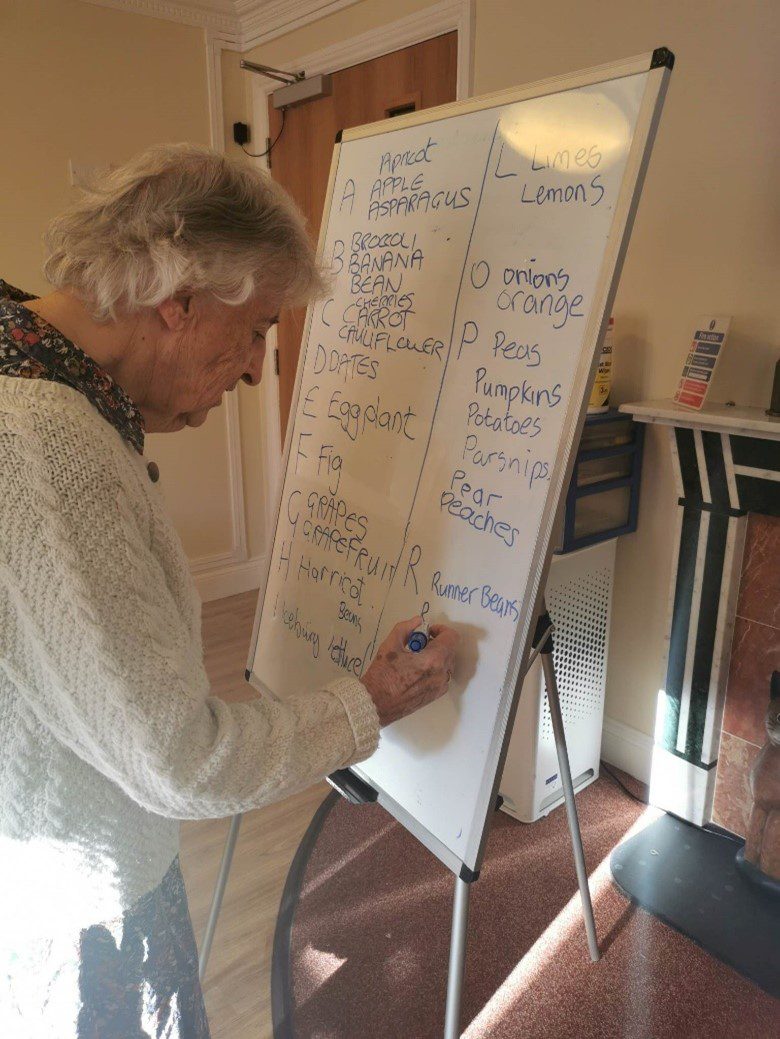 Apricot
A APPLE
ASPARAGUS
BROCCOLI
B BANANA
BEAN
CHERRIES
C CARROT
CAULIFLOWER
D DATES
E Eggplant
F Fig
G GRAPES
GRAPEFRUIT
H Harricot
Beans
I Iceburg lettuce
L Limes
Lemons
O onions
orange
P Peas
Pumpkins
Potatoes
Parsnips
Pear
peaches
R Runner Beans
Fire action